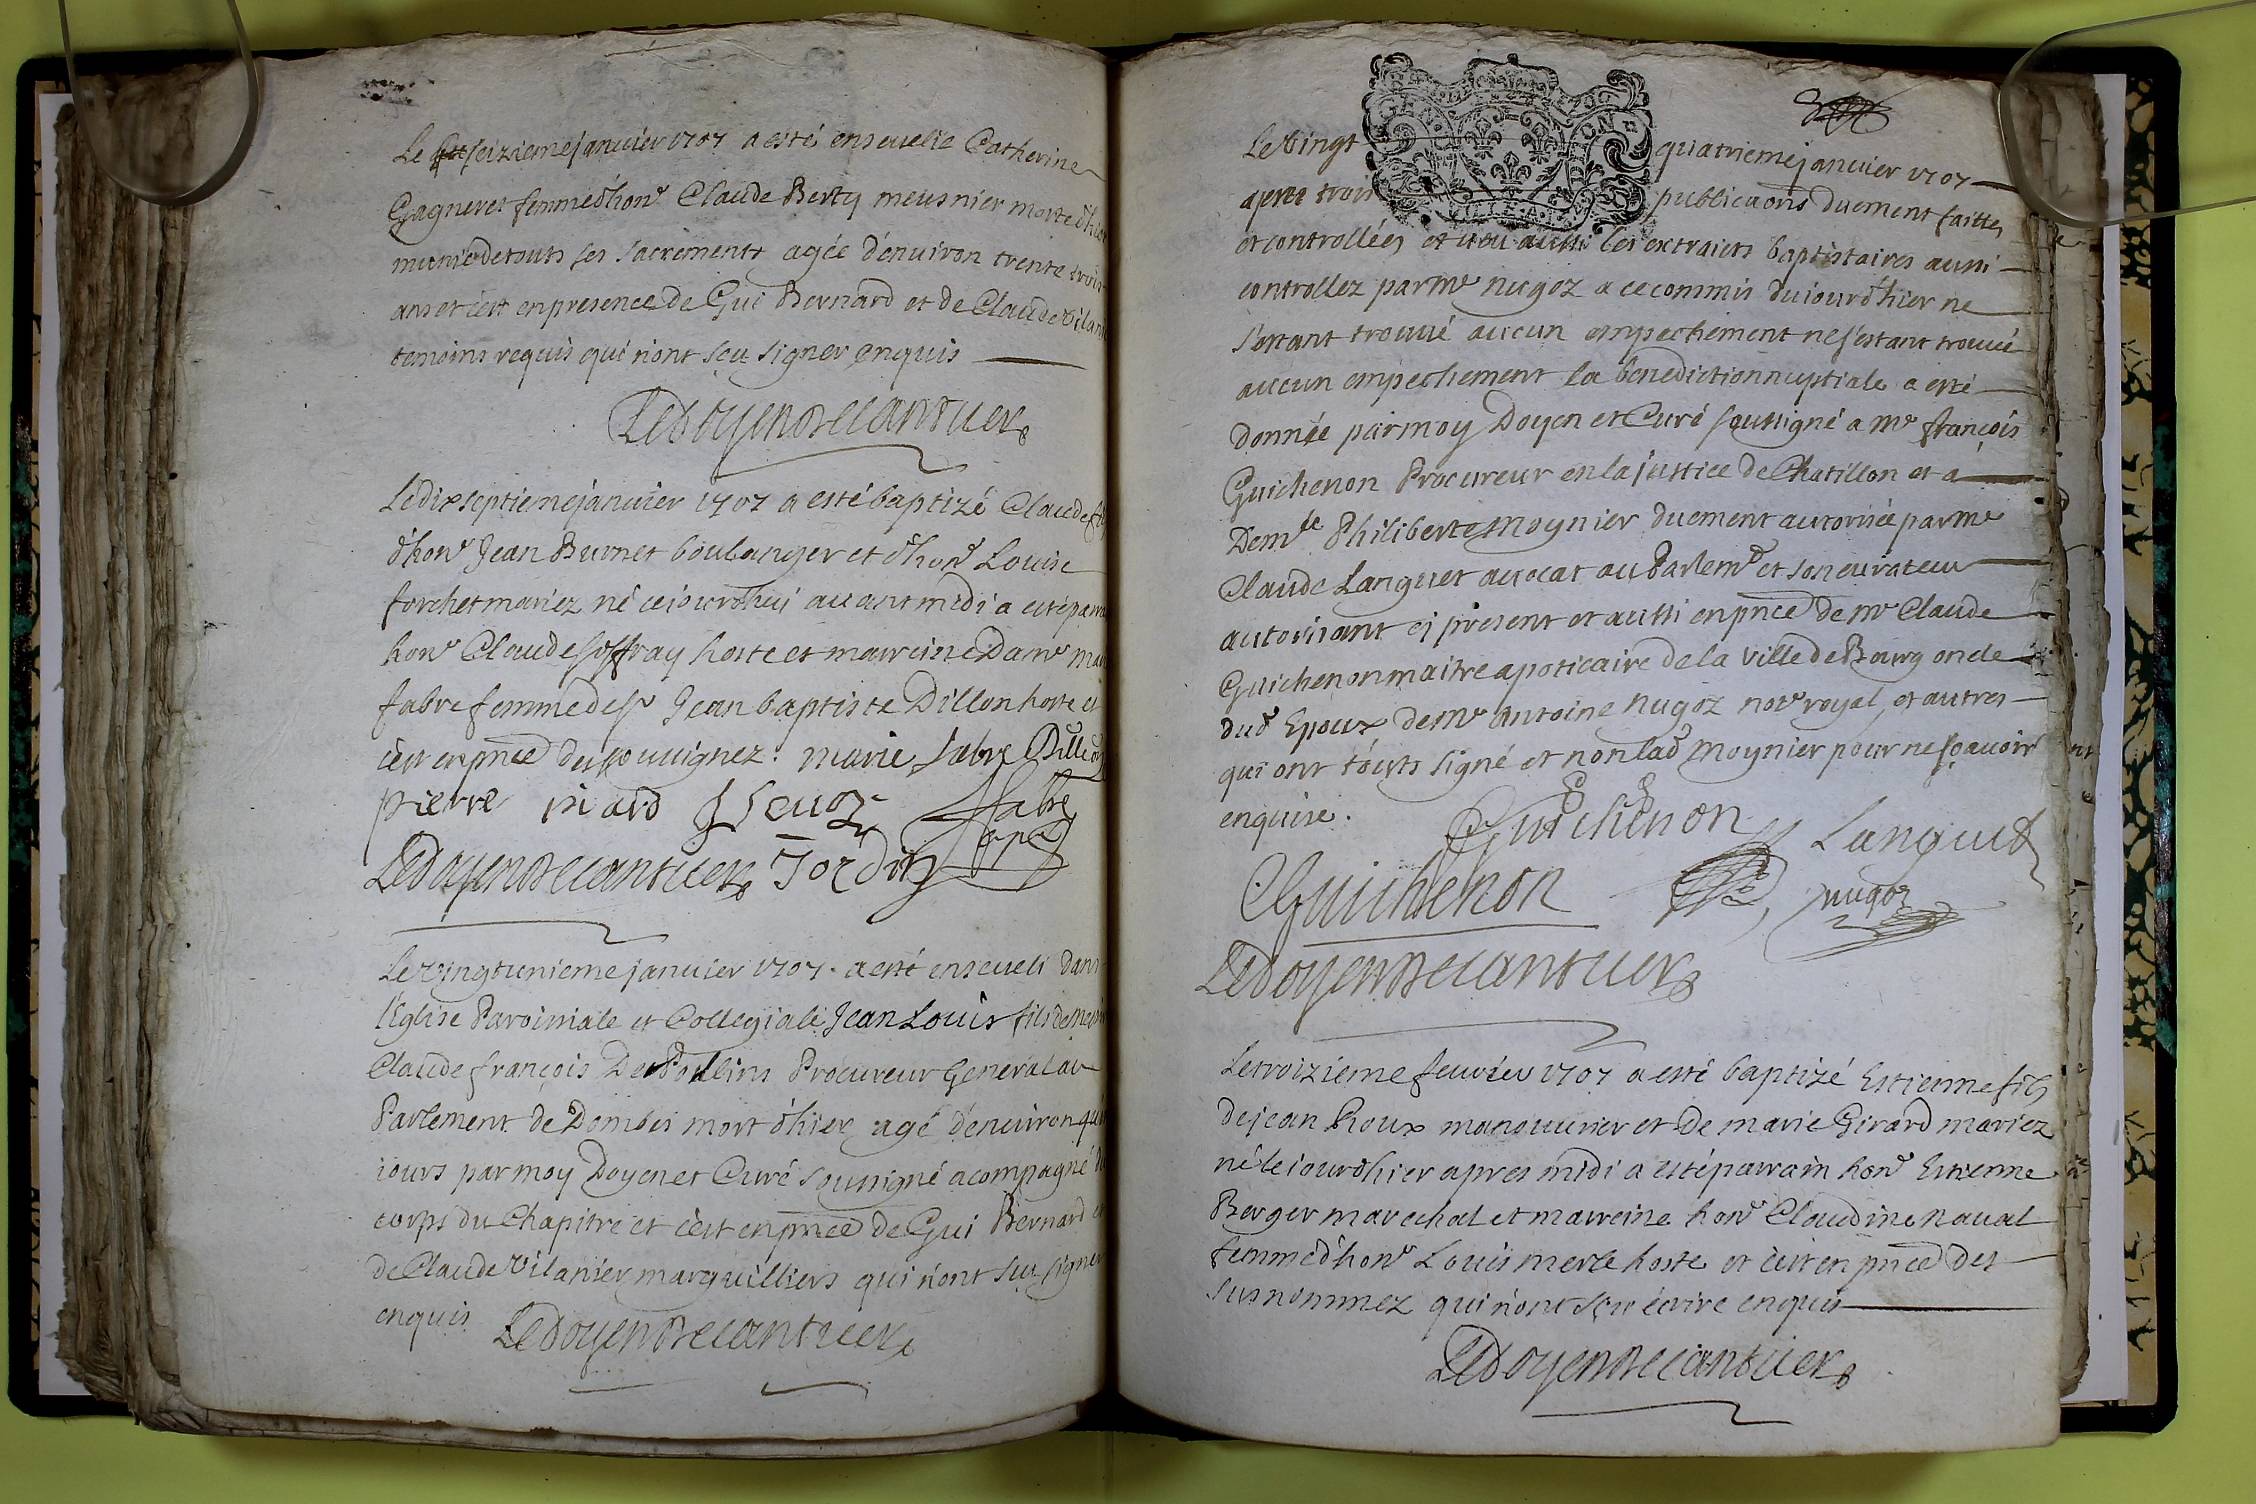 Le seizieme janvier 1707 a esté ensevelie Catherine
Gagneret femme d'honᵉ Claude Berty meusnier morte d'hier
munie de touts ses sacrements agée d'environ trente trois
ans et c'est en presence de Gui Bernard et de Claude Vilanier
temoins requis qui n'ont sçu signer enquis
Le doyen Decantuer
Le dix septieme janvier 1707 a esté baptizé Claude fils
d'honᵉ Jean Burnet boulanger et d'honᵉ Louise
forchet mariez né cejourd'hui avant midi a esté parrain
honᵉ Claude Joffray hoste et marreine Damᵉ Marie
fabre femme de sʳ Jean baptiste Dillon hoste et
c'est en pnce des soussignez. marie fabre Dillon
pierre fabre
Le doyen Decantuer
Le vingt unieme janvier 1707. a esté enseveli dans
l'Eglise Paroissiale et Collegiale Jean Louis fils de
Claude françois Procureur General au
Parlement de Dombes mort d'hier agé d'environ
iours par moy Doyen et Curé soussigné acompagné du
corps du Chapitre et c'est en pnce de Gui Bernard et
de Claude Vilanier marguilliers qui n'ont sçu signer
enquis
Le doyen Decantuer
Le vingt quatrieme janvier 1707
apres trois publicaons duement faittes
et controllées et veu aussi les extraicts baptistaires aussi
controllez par mᵉ nugoz a ce commis du iour d'hier ne
s'estant trouvé aucun empechement ne s'estant trouvé
aucun empechement la benediction nuptiale a esté
donnée par moy Doyen et Curé soussigné a mᵉ françois
Guichenon Procureur en la justice de Chatillon et a
Demˡᵉ Philiberte Moynier duement autorisée par me
Claude Languet avocat au Parlemᵗ et son curateur
autorisant ci present et aussi en pnce de mʳ Claude
Guichenon maitre apoticaire de la ville de Bourg oncle
dud Epoux, de mᵉ Antoine nugoz notᵉ royal, et autres
qui ont touts signé et non lad moynier pour ne sçavoir
enquise.
Guichenon Languet
CGuichenon nugoz
Le doyen Decantuer
Le troizieme fevrier 1707 a esté baptizé Estienne fils
de jean Roux manouvrier et de marie Girard mariez
né le iour d'hier apres midi a esté parrain honᵉ Estienne
Berger marechal et marreine honᵉ Claudine naval
femme d'honᵉ Louis merle hoste et c'est en pnce des
susnommez qui n'ont sçu écrire enquis
Le doyen Decantuer